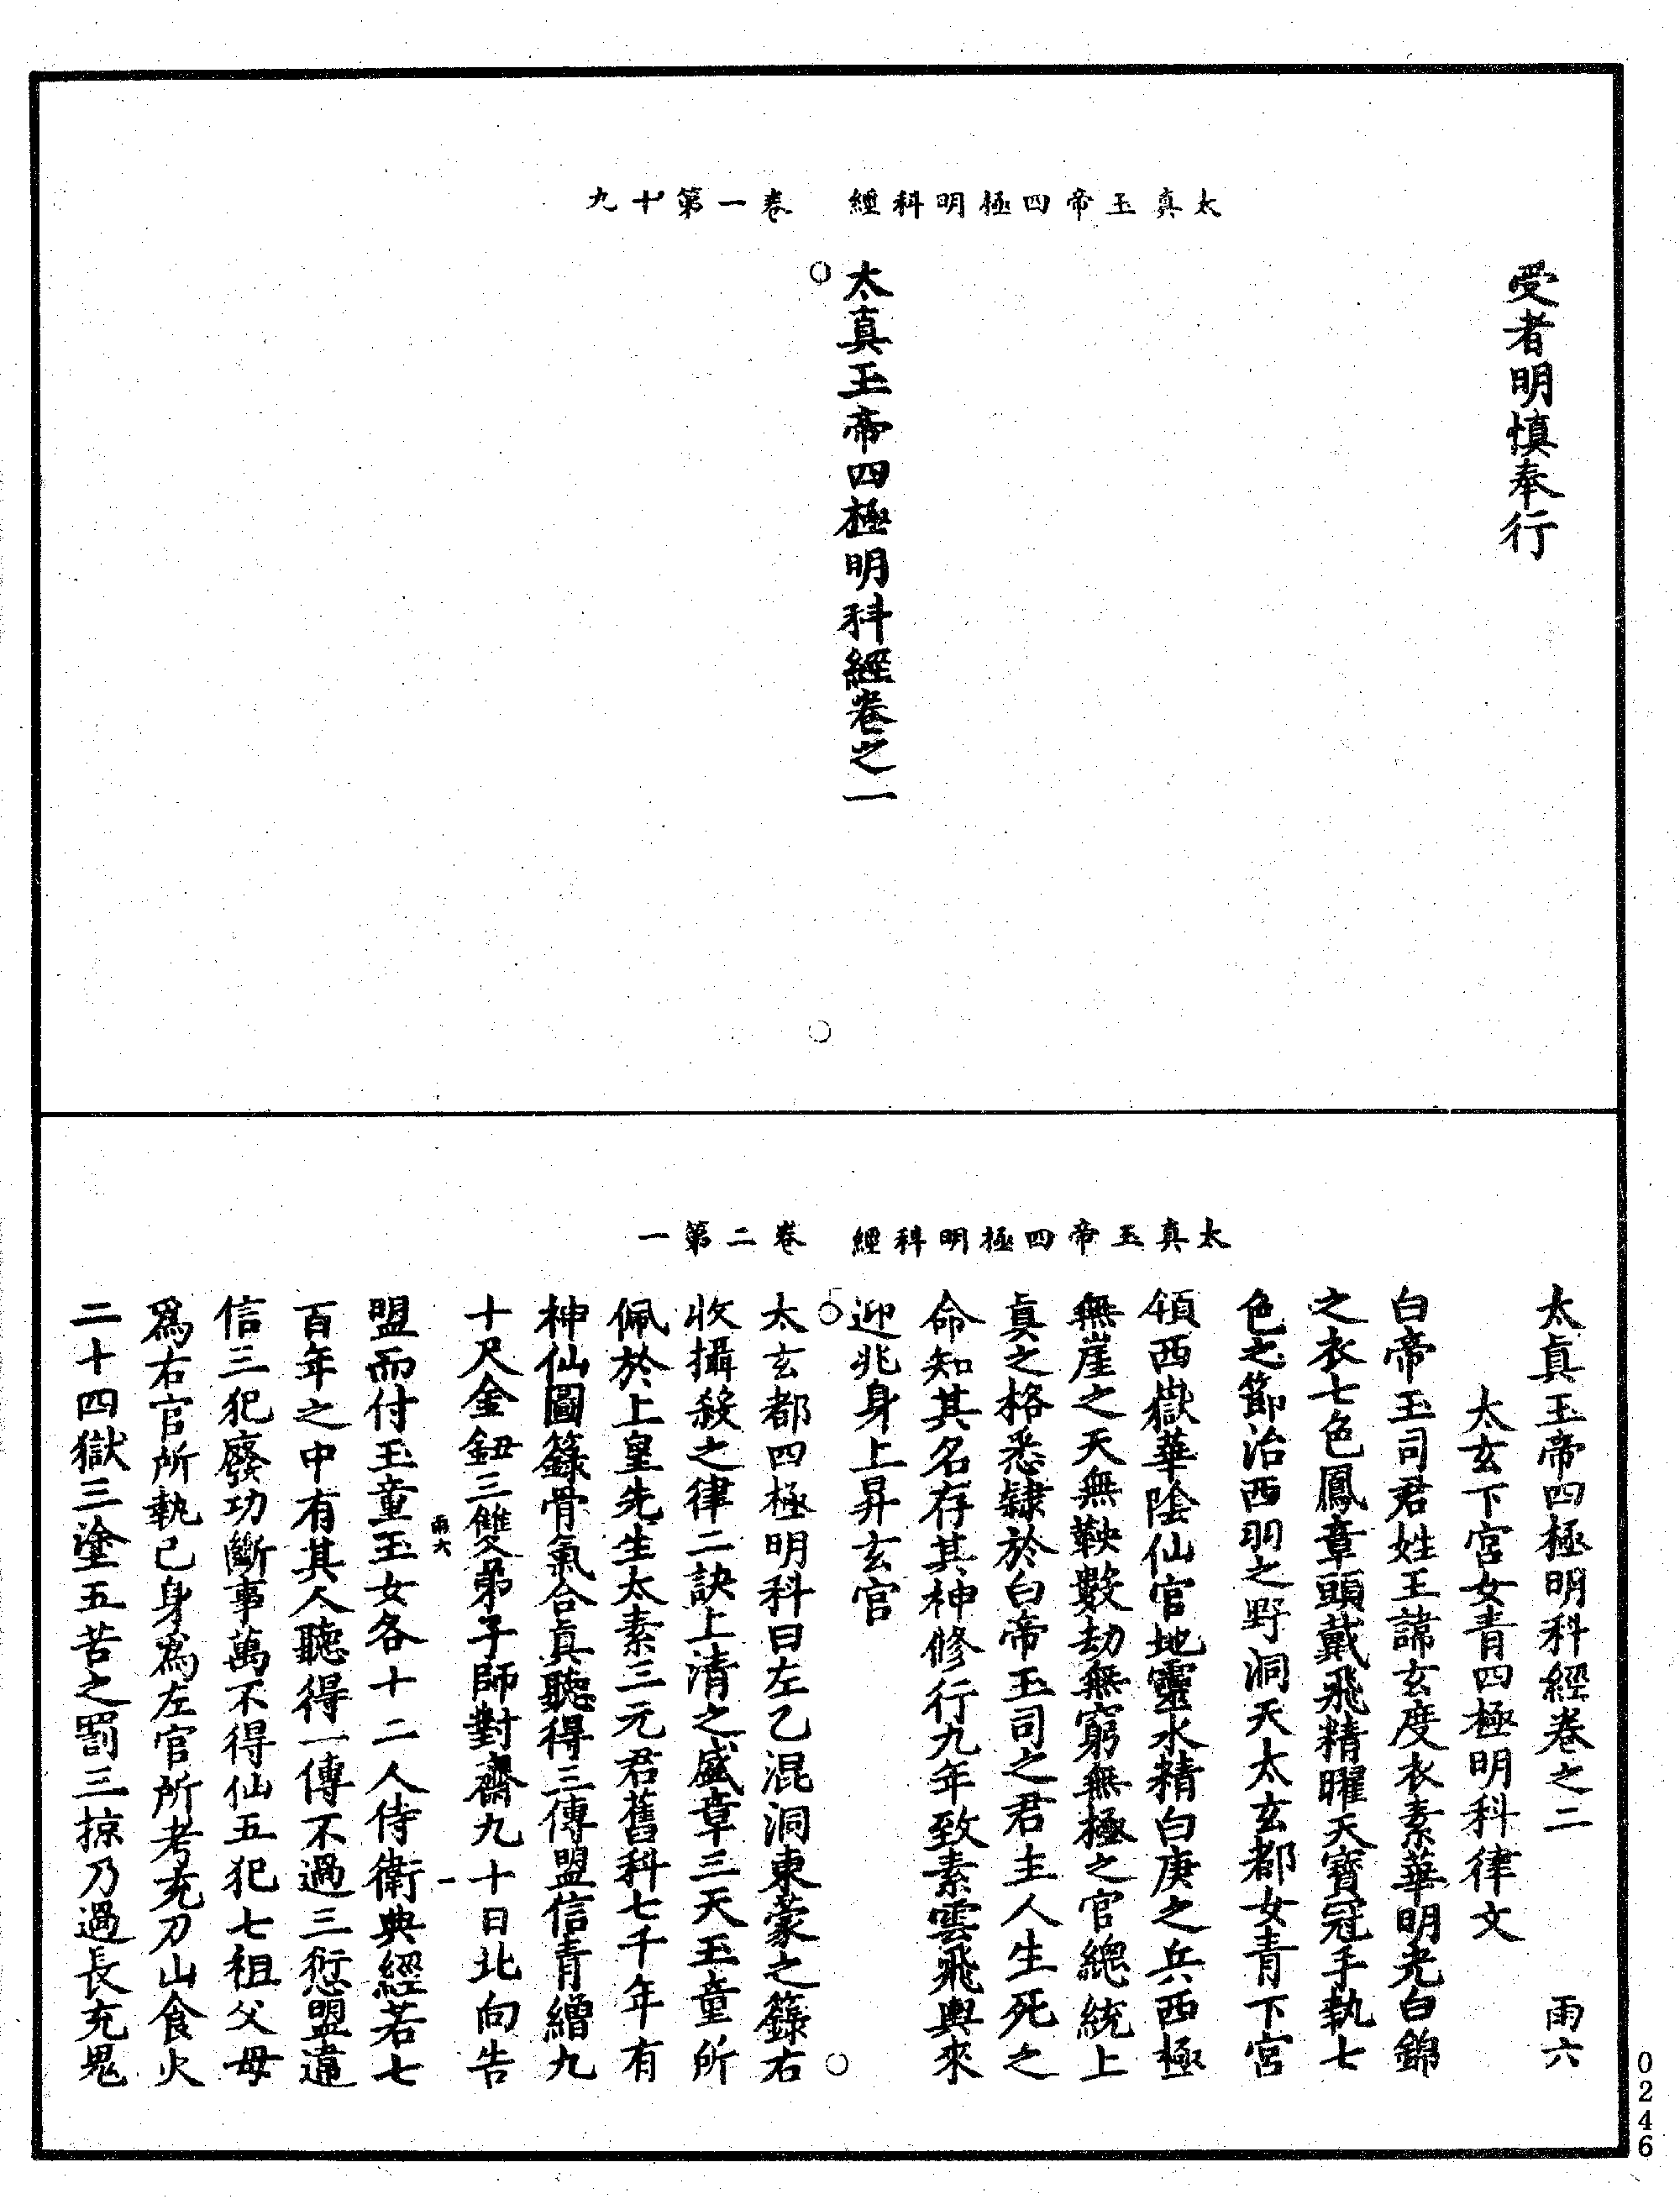 太真玉帝四極明科經　卷一第十九
受者明慎奉行
太真玉帝四極明科經卷之一
太真玉帝四極明科經　卷二第一
太真玉帝四極明科經卷之二　雨六
太玄下宮女青四極明科律文
白帝玉司君姓王諱玄度衣素華明光白錦
之衣七色鳳章頭戴飛精曜天寶冠手執七
色之節治西羽之野洞天太玄都女青下宮
領西嶽華陰仙官地靈水精白庚之兵西極
無崖之天無鞅數劫無窮無極之官總統上
真之格悉隸於白帝玉司之君主人生死之
命知其名存其神修行九年致素雲飛輿來
迎兆身上昇玄宮
太玄都四極明科曰左乙混洞東蒙之籙右
收攝殺之律二訣上清之盛章三天玉童所
佩於上皇先生太素三元君舊科七千年有
神仙圖籙骨氣合真聽得三傳盟信青繒九
十尺金鈕三雙弟子師對齋九十日北向告
雨六　一
盟而付玉童玉女各十二人侍衛典經若七
百年之中有其人聽得一傳不過三愆盟違
信三犯廢功斷事萬不得仙五犯七祖父母
爲右官所執己身爲左官所考充刀山食火
二十四獄三塗五苦之罰三掠乃過長充鬼
0246